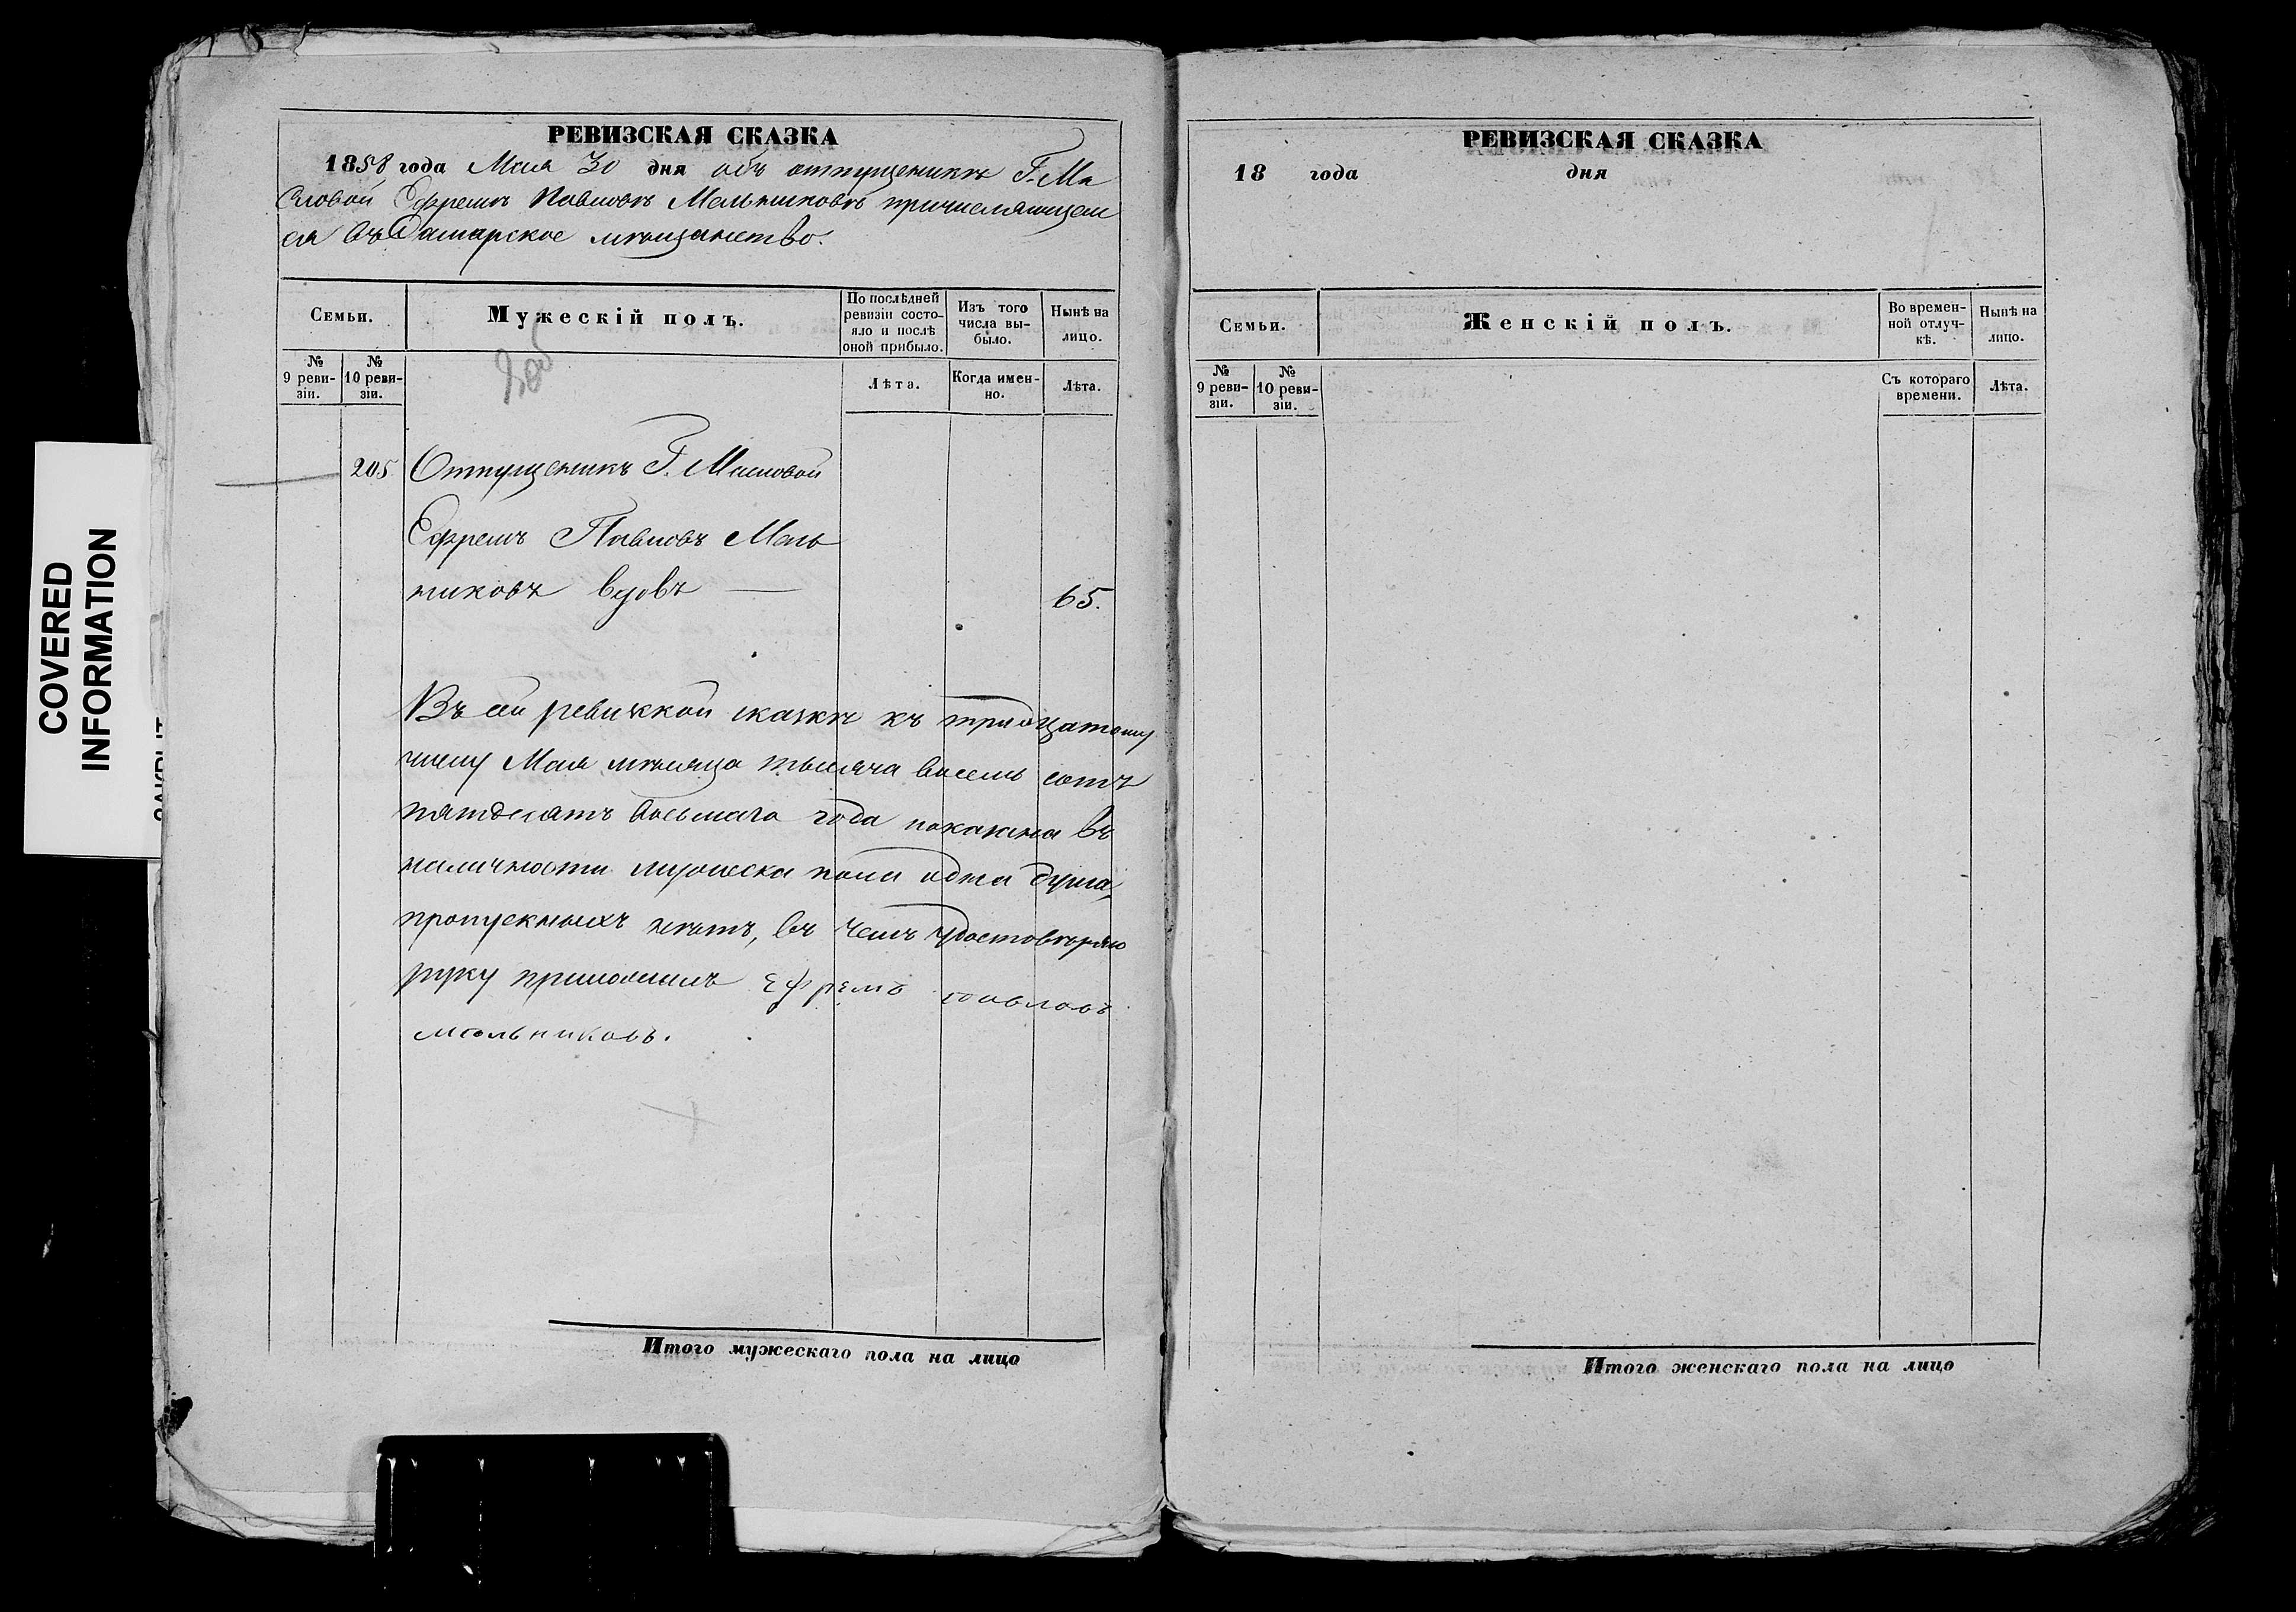 РЕВИЗСКАЯ СКАЗКА
1858 года Мая 30 дня объ отпущеникѣ Г. Ма
словой Ефремѣ Павловѣ Мельниковѣ причисляющем
ся въ Самарское мѣщанство.
Семьи.
Мужескій полъ.
По послѣдней ревизіи состо-
яло и послѣ
оной прибыло.
Изъ того
числа вы-
было.
Нынѣ на
лицо.
№
9 реви-
зіи.
№
10 реви-
зіи.
Лѣта.
Когда имен-
но.
Лѣта.
205 Отпущеникъ Г. Масловой
Ефремъ Павловъ Мель
никовъ вдовъ — 65.
Въ сей ревизкой сказкѣ къ тридцатому
числу Мая мѣсяца тысяча восемь сотъ
пятдесятъ восьмаго года показана въ
наличности мужеска пола одна душа,
пропускныхъ нѣтъ, въ чемъ удостовѣряю
руку приложилъ Ефремъ павловъ
мельниковъ.
Итого мужескаго пола на лицо
РЕВИЗСКАЯ СКАЗКА
18 года дня
Семьи.
Женскій полъ.
Во времен-
ной отлуч-
кѣ.
Нынѣ на
лицо.
№
9 реви-
зіи.
№
10 реви-
зіи.
Съ котораго
времени.
Лѣта.
Итого женскаго пола на лицо
COVERED
INFORMATION